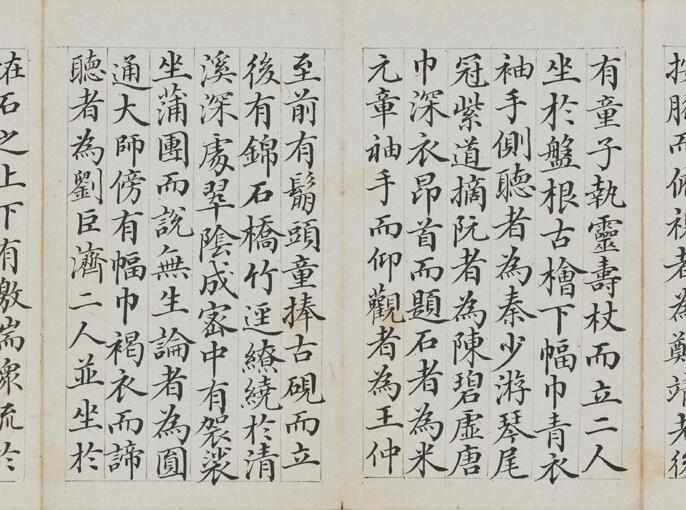 按膝而俯視者為鄭靖老後
有童子執靈壽杖而立二人
坐於盤根古檜下幅巾青衣
袖手側聽者為秦少游琴尾
冠紫道摘阮者為陳碧虛唐
巾深衣昂首而題石者為米
元章袖手而仰觀者為王仲
至前有鬅頭童捧古硯而立
後有錦石橋竹逕繚繞於清
溪深處翠陰成密中有袈裟
坐蒲團而說無生論者為圓
通大師傍有幅巾褐衣而諦
聽者為劉巨濟二人並坐於
石之上下有激湍潀流於